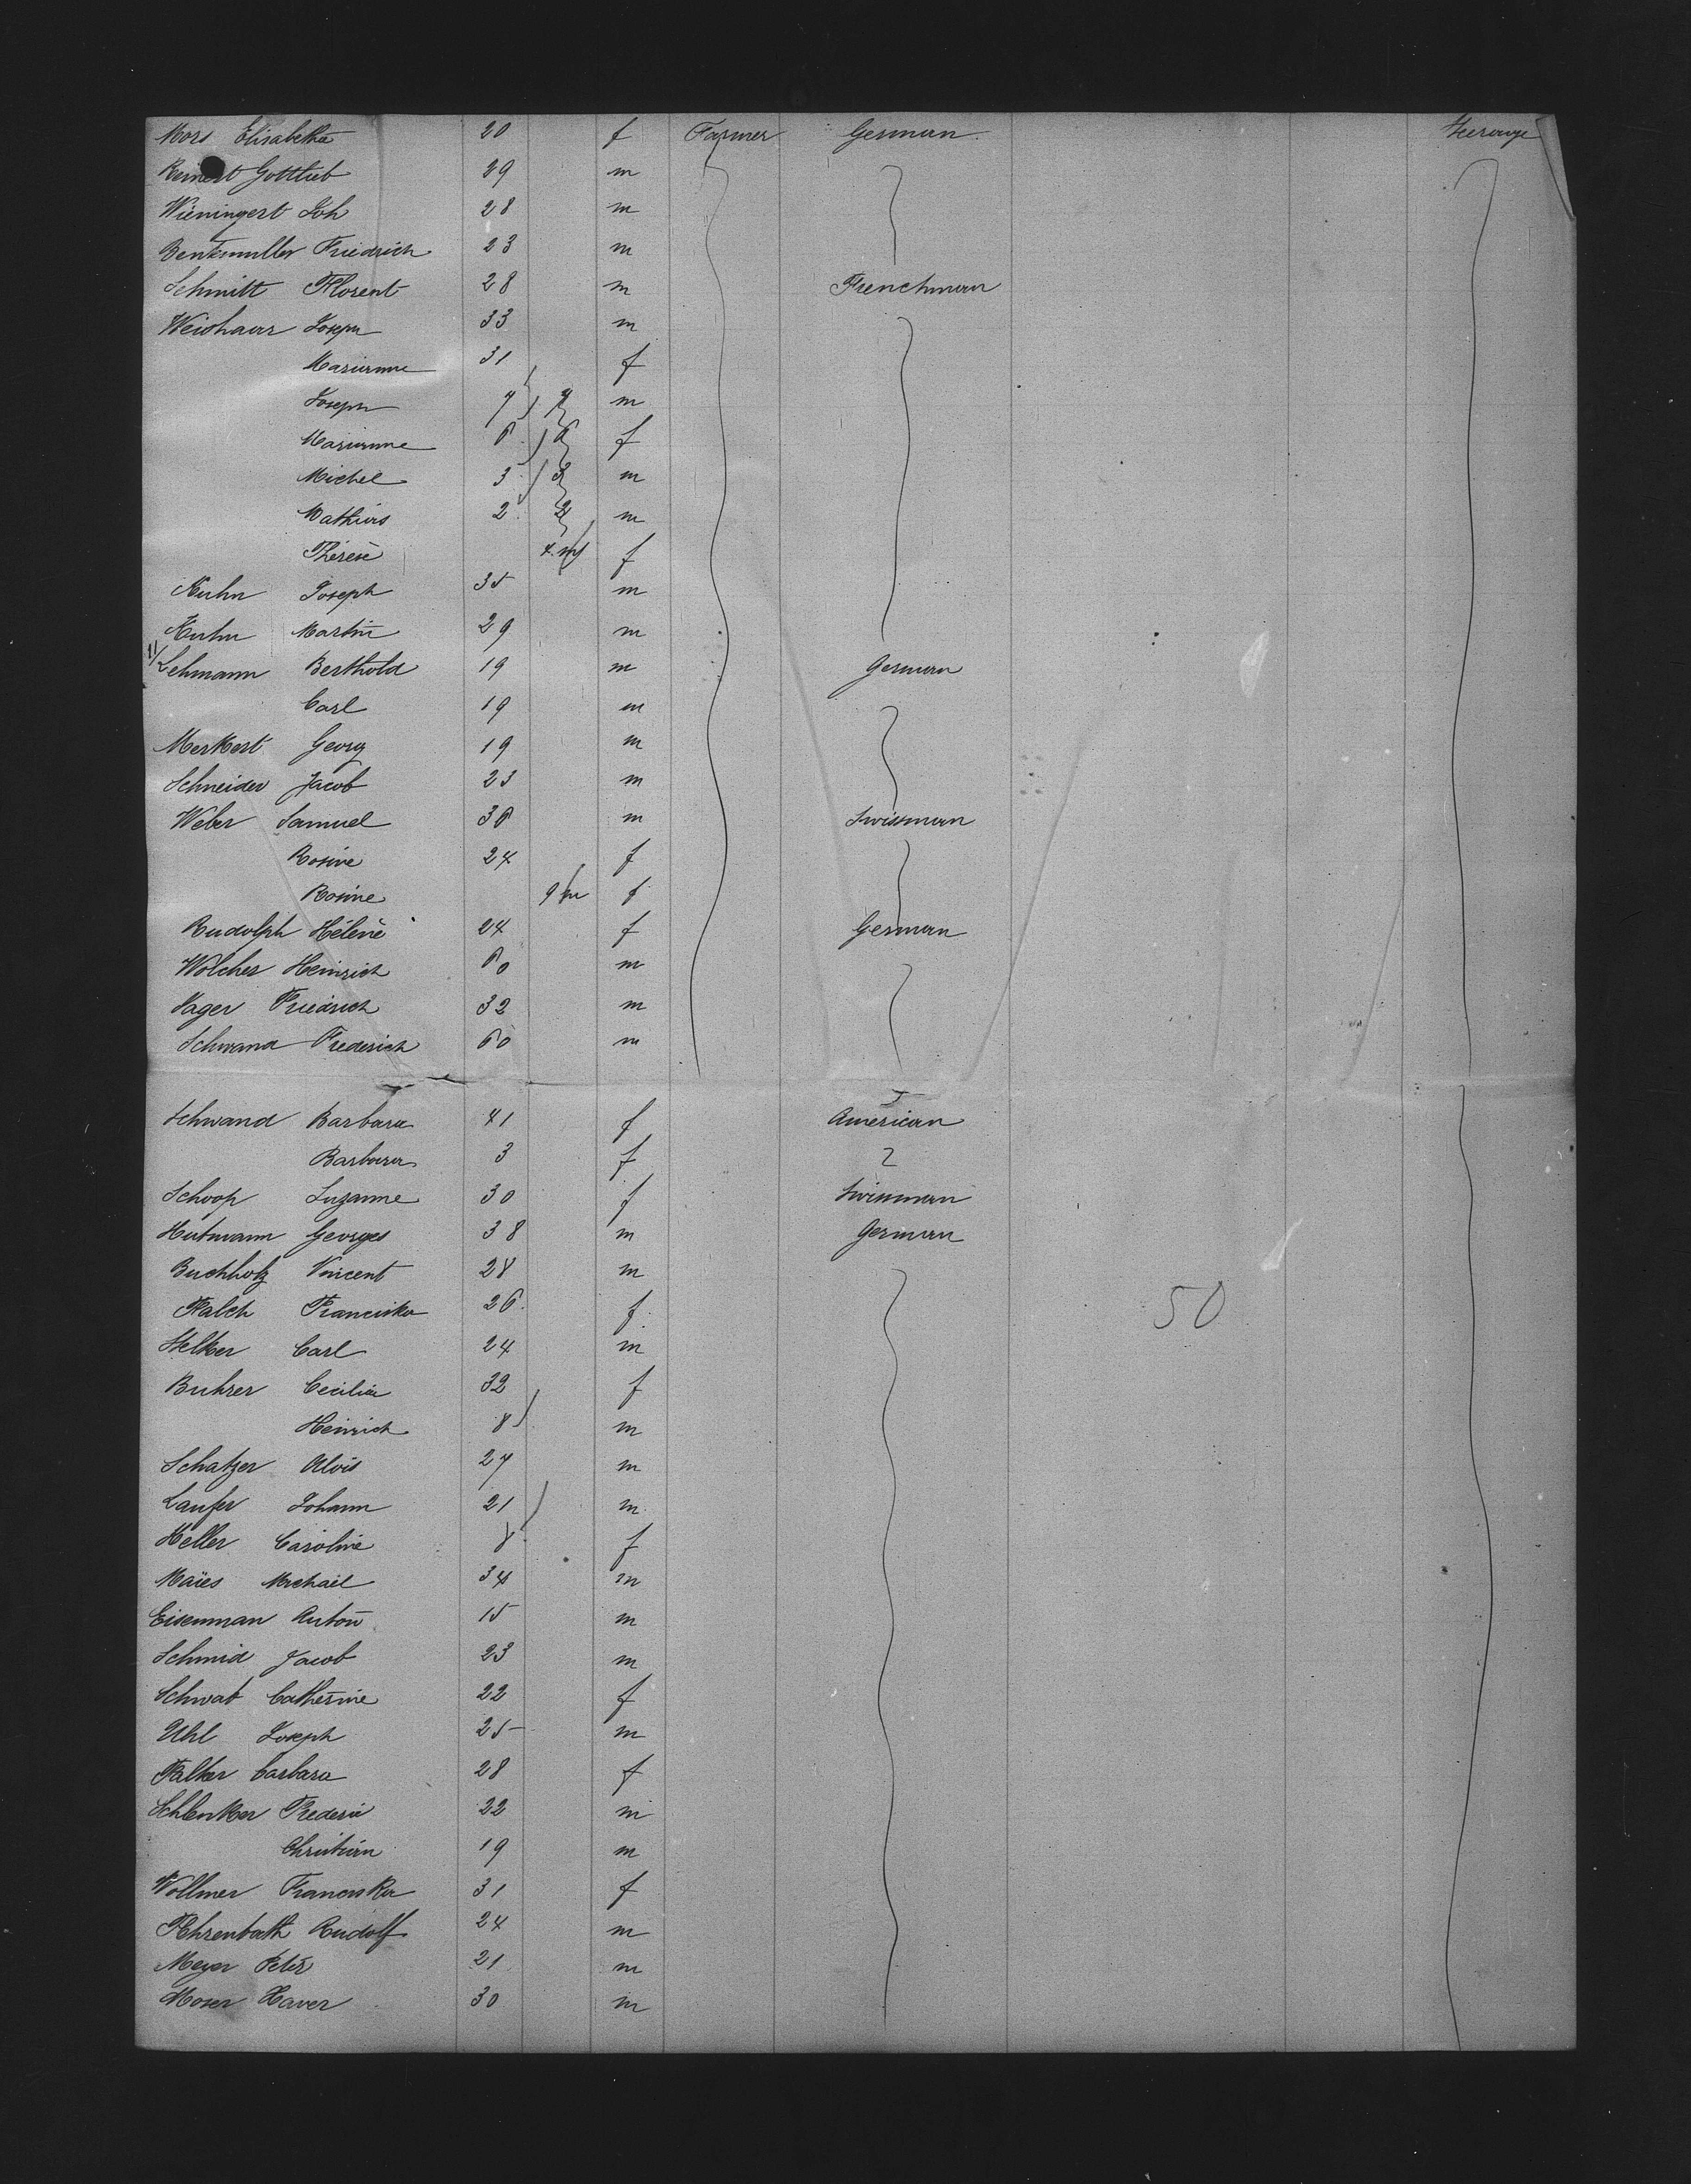 Mors Elisabetha 20 f Farmer German Steerage
Reinert Gottlieb 29 m
Wieningert Joh 28 m
Bentzmuller Friedrich 23 m
Schmitt Florent 28 m Frenchman
Weishaar Joseph 33 m
Marianne 31 f
Joseph 7 m
Marianne 6 6 f
Michel 3 3 m
Mathias 2 2 m
Thérèse 4 m f
Kuhn Joseph 35 m
Kuhn Martin 29 m
Lehmann Berthold 19 m German
Carl 19 m
Merkert Georg 19 m
Schneider Jacob 23 m
Weber Samuel 36 m Swissman
Rosine 24 f
Rosine 9 m f
Rudolph Hélène 24 f German
Wolcher Heinrich 60 m
Hager Friedrich 32 m
Schwand Frederich 60 m
Schwand Barbara 41 f American
Barbara 3 f
Schoop Suzanne 30 f Swissman
Hutmann Georges 38 m German
Buchholz Vincent 28 m
Falch Franciska 26 f 50
Helker Carl 24 m
Buhrer Cecilia 32 f
Heinrich 8 m
Schatzer Alois 27 m
Laufer Johann 21 m
Heller Caroline 8 f
Maies Michael 34 m
Eisenman Anton 15 m
Schmid Jacob 23 m
Schwab Catherine 22 f
Uhl Joseph 25 m
Falker barbara 28 f
Schlenker Frederic 22 m
Christian 19 m
Vollmer Franciska 31 f
Fehrenbath Rudolf 24 m
Meyer Peter 21 m
Moser Xaver 30 m